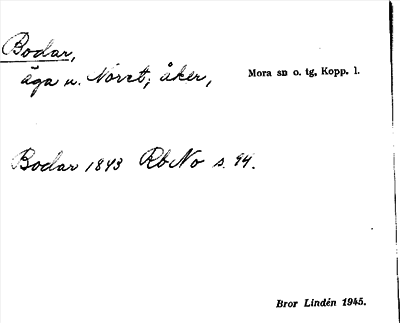 Bodar,
äga u. Noret; åker,
Mora sn o. tg, Kopp. l.
Bodar 1843 RbNo s. 94.
Bror Lindén 1945.